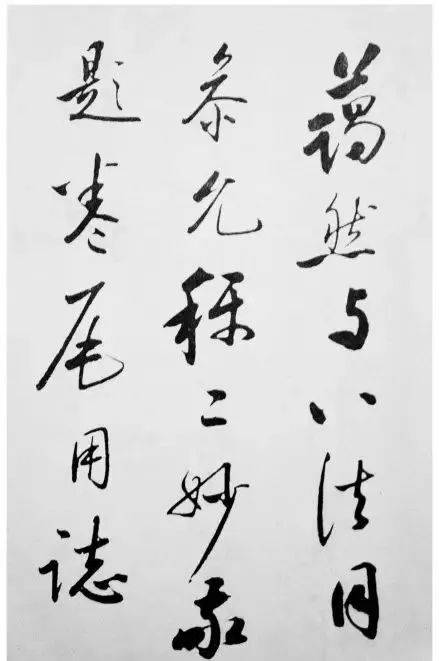 蔼然与八法同
参允称二妙敬
题卷尾用誌